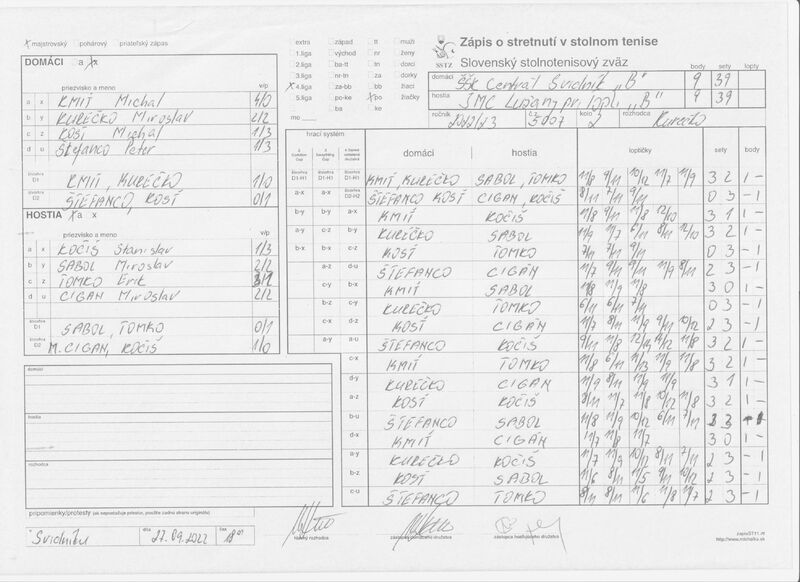 majstrovský pohárový priateľský zápas
DOMÁCI a x
priezvisko a meno v/p
a x KMIŤ Michal 4/0
b y KUREČKO Miroslav 2/2
c z KOSŤ Michal 1/3
d u ŠTEFANCO Peter 1/3
štvorhra D1 KMIŤ, KUREČKO 1/0
štvorhra D2 ŠTEFANCO, KOSŤ 0/1
HOSTIA a x
priezvisko a meno v/p
a x KOČIŠ Stanislav 1/3
b y SABOL Miroslav 2/2
c z TOMKO Erik
d u CIGÁN Miroslav 2/2
štvorhra D1 SABOL, TOMKO 0/1
štvorhra D2 M. CIGÁN, KOČIŠ 1/0
domáci
hostia
rozhodca
pripomienky/protesty (ak nepostačuje priestor, použite zadnú stranu originálu)
v Svidníku dňa 27.09.2022 čas 18
extra západ tt muži
1.liga východ nr ženy
2.liga ba-tt tn dorci
3.liga nr-tn za dorky
4.liga za-bb bb žiaci
5.liga po-ke po žiačky
mo ba ke
SSTZ
Zápis o stretnutí v stolnom tenise
Slovenský stolnotenisový zväz
body sety lopty
domáci ŠŠK Centrál Svidník „B" 9 39
hostia 9 39
ročník 2022/23 č. kolo 2 rozhodca Kurečko
hrací systém domáci hostia loptičky sety body
D1-H1 KMIŤ, KUREČKO SABOL, TOMKO 11/8 9/11 10/12 11/7 11/9 3 2 1 -
a-x ŠTEFANCO KOSŤ CIGÁN, KOČIŠ 8/11 7/11 9/11 0 3 - 1
b-y b-y a-x KMIŤ KOČIŠ 11/8 9/11 11/8 12/10 3 1 1 -
a-y c-z b-y KUREČKO SABOL 11/9 11/7 6/11 8/11 12/10 3 2 1 -
b-x b-x c-z KOSŤ TOMKO 7/11 7/11 9/11 0 3 - 1
a-z d-u ŠTEFANCO CIGÁN 11/7 9/11 9/11 11/9 8/11 2 3 - 1
c-y b-x KMIŤ SABOL 11/8 11/9 11/8 3 0 1 -
b-z c-y KUREČKO TOMKO 6/11 6/11 7/11 0 3 - 1
c-x d-z KOSŤ CIGÁN 11/7 8/11 11/9 9/11 10/12 2 3 - 1
a-y a-u ŠTEFANCO KOČIŠ 8/11 11/8 12/10 11/8 3 2 1 -
c-x KMIŤ TOMKO 11/8 6/11 11/13 11/9 11/8 3 2 1 -
d-y KUREČKO CIGÁN 11/9 8/11 11/7 11/9 3 1 1 -
a-z KOSŤ KOČIŠ 8/11 11/7 11/8 10/12 11/8 3 2 1 -
b-u ŠTEFANCO SABOL 11/8 11/9 10/12 6/11 7/11 2 3 - 1
d-x KMIŤ CIGÁN 11/7 11/8 11/7 3 0 1 -
a-y KUREČKO KOČIŠ 11/7 11/9 10/12 8/11 7/11 2 3 - 1
b-z KOSŤ SABOL 11/6 8/11 11/5 9/11 10/12 2 3 - 1
c-u ŠTEFANCO TOMKO 8/11 9/11 11/6 11/8 7/11 2 3 - 1
hlavný rozhodca zástupca domáceho družstva zástupca hosťujúceho družstva
zapisST11.rtf
http://www.michalka.sk